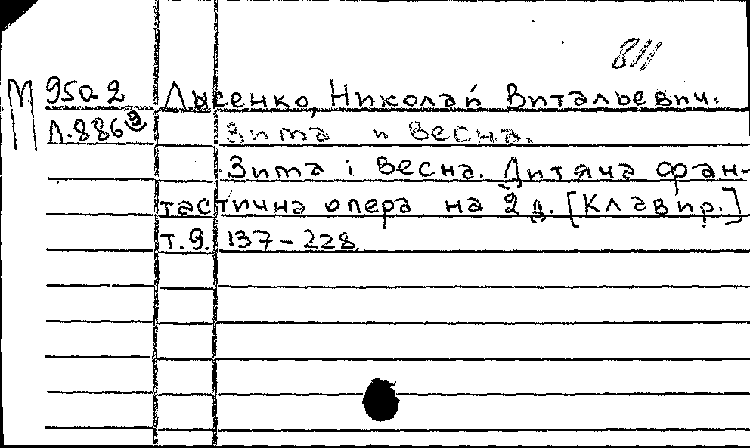 811
М 950-2 Лысенко, Николай Витальевич.
Л.886 Зима и весна.
Зима і весна. Дитяча фан-
тастична опера на 2 д. [Клавір.]
т.9. 137-228